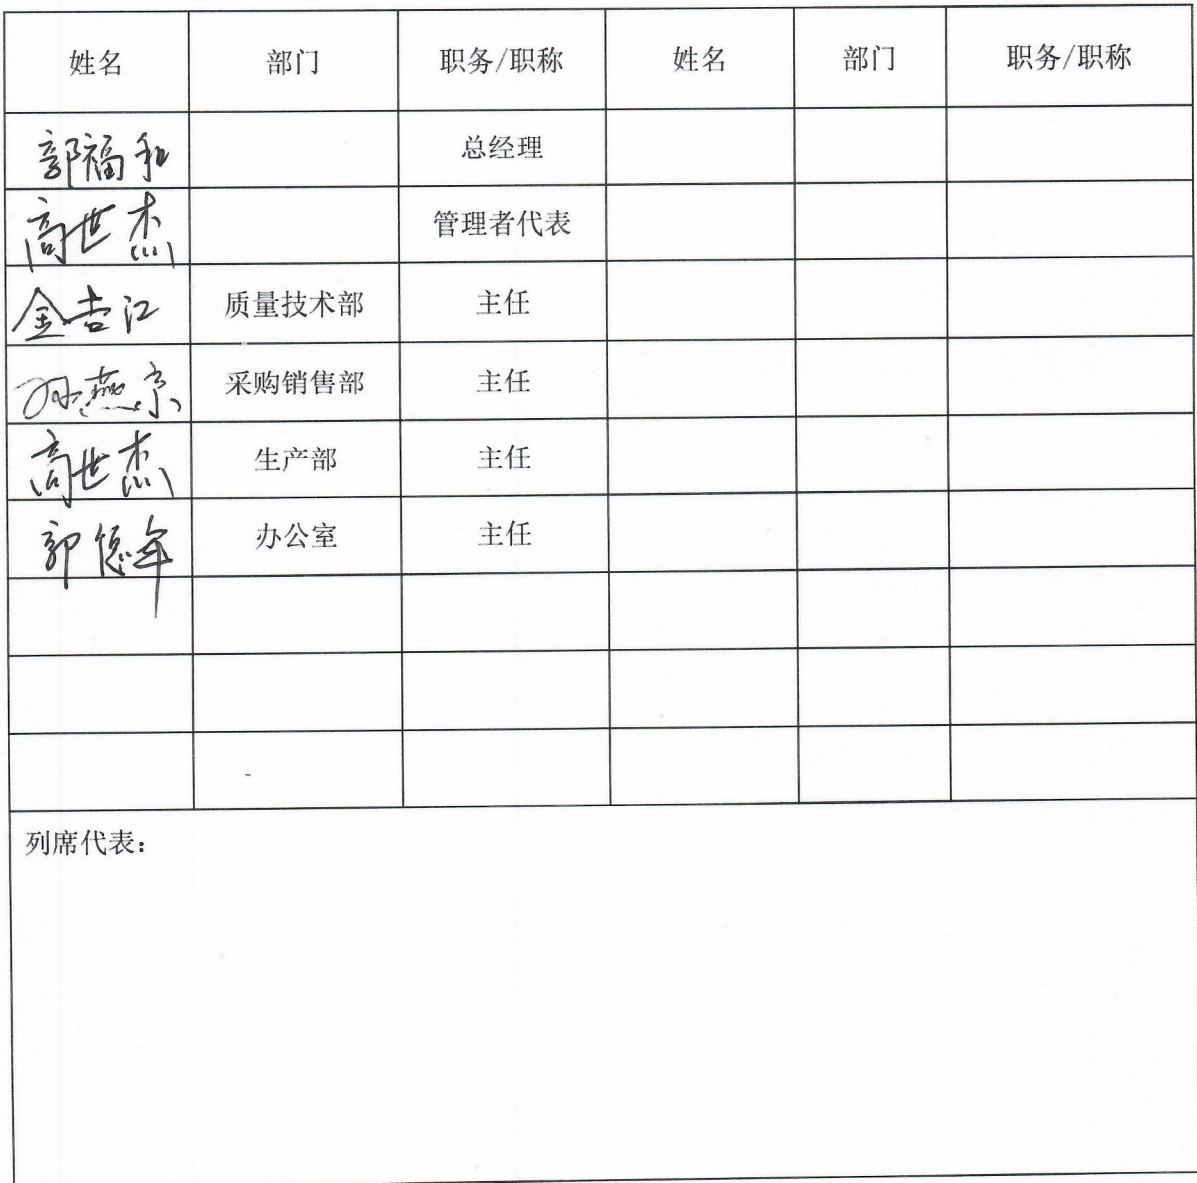 姓名 部门 职务/职称 姓名 部门 职务/职称
郭福和 总经理
高世杰 管理者代表
金吉江 质量技术部 主任
孙燕京 采购销售部 主任
高世杰 生产部 主任
郭德年 办公室 主任
列席代表：